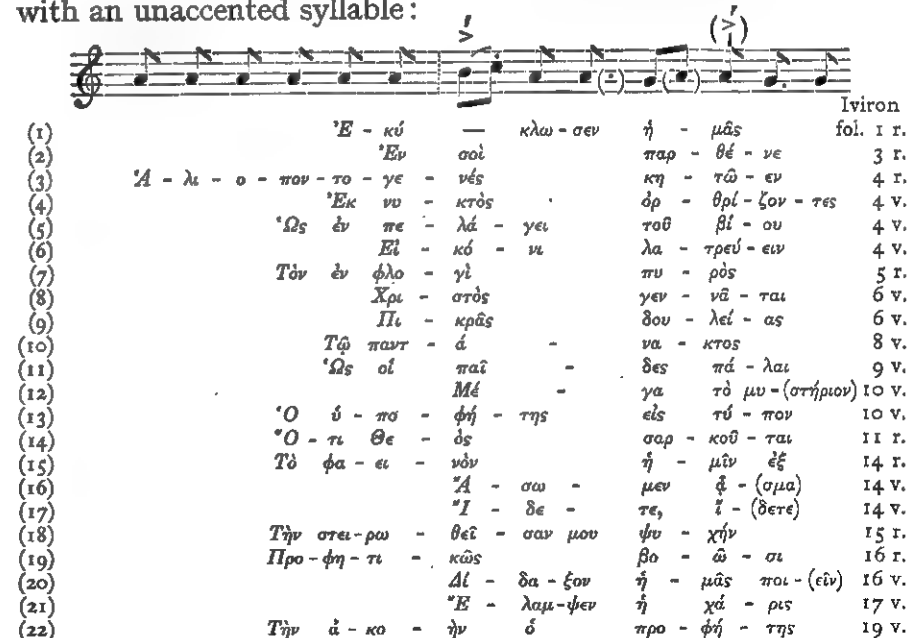 with an unaccented syllable:
Iviron
(1) Ἐ - κύ — κλω - σεν ἡ - μᾶς fol. 1 r.
(2) Ἐν σοὶ παρ - θέ - νε 3 r.
(3) Ἁ - λι - ο - πον - το - γε - νές κη - τῶ - εν 4 r.
(4) Ἐκ νυ - κτὸς ὀρ - θρί - ζον - τες 4 v.
(5) Ὡς ἐν πε - λά - γει τοῦ βί - ου 4 v.
(6) Εἰ - κό - νι λα - τρεύ - ειν 4 v.
(7) Τὸν ἐν φλο - γὶ πυ - ρὸς 5 r.
(8) Χρι - στὸς γεν - νᾶ - ται 6 v.
(9) Πι - κρᾶς δου - λεί - ας 6 v.
(10) Τῷ παντ - ά - να - κτος 8 v.
(11) Ὡς οἱ παῖ - δες πά - λαι 9 v.
(12) Μέ - γα τὸ μυ - (στήριον) 10 v.
(13) Ὁ ὑ - πο - φή - της εἰς τύ - πον 10 v.
(14) Ὅ - τι Θε - ὸς σαρ - κοῦ - ται 11 r.
(15) Τὸ φα - ει - νὸν ἡ - μῖν ἐξ 14 r.
(16) Ἄ - σω - μεν ᾆ - (σμα) 14 v.
(17) Ἴ - δε - τε, ἴ - (δετε) 14 v.
(18) Τὴν στει - ρω - θεῖ - σαν μου ψυ - χήν 15 r.
(19) Προ - φη - τι - κῶς βο - ῶ - σι 16 r.
(20) Δί - δα - ξον ἡ - μᾶς ποι - (εῖν) 16 v.
(21) Ἔ - λαμ - ψεν ἡ χά - ρις 17 v.
(22) Τὴν ἀ - κο - ὴν ὁ προ - φή - της 19 v.